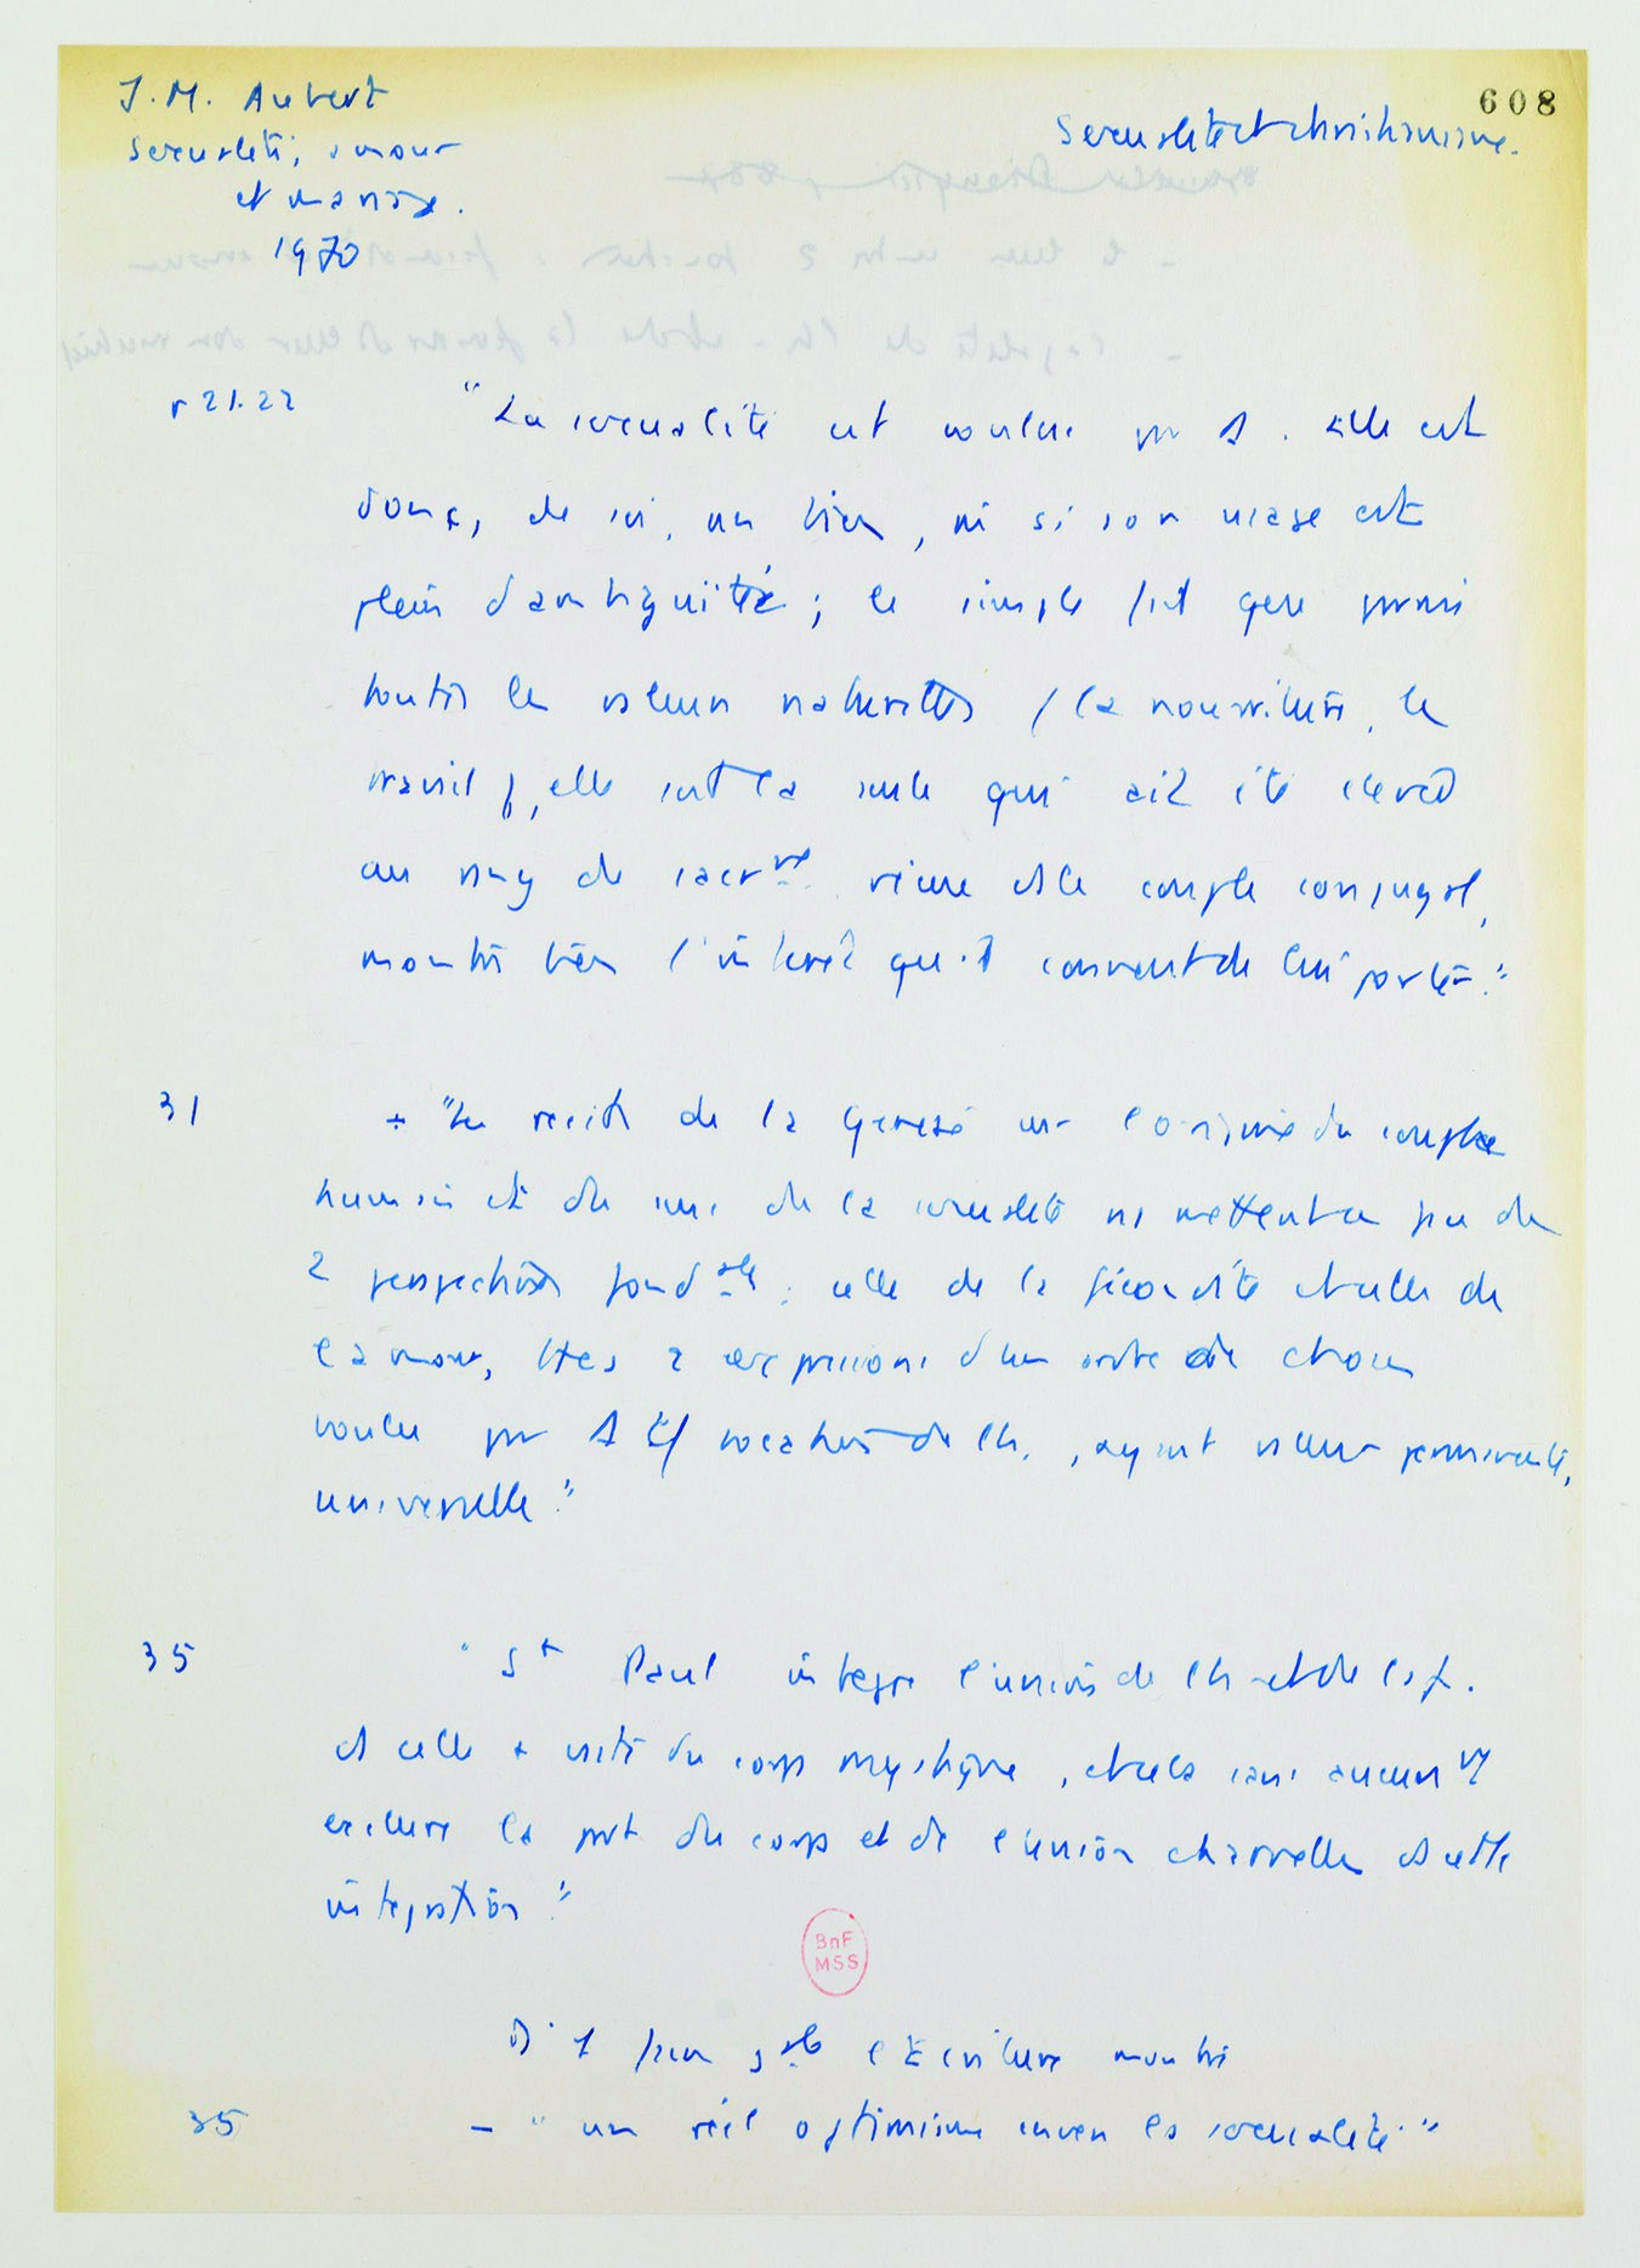 J.M. Aubert
Sexualité, amour
et mariage.
1970
608
Sexualité et christianisme.
p 21.22
"La sexualité est voulue par D. Elle est
donc, de soi, un bien, m̂ si son usage est
plein d'ambiguïté ; le simple fait que parmi
toutes les valeurs naturelles (la nourriture, le
travail), elle soit la seule qui ait été élevée
au rang de sacrnt. vécue ds le couple conjugal,
montre bien l'intérêt qu'il convient de lui porter."
31
"Les récits de la Genèse sur l'origine du couple
humain et du sens de la sexualité ns mettent en face de
2 perspectives fondales : celle de la fécondité et celle de
l'amour, ttes 2 expressions d'un ordre de choses
voulu par D et vocation de l'h., ayant valeur permanente,
universelle."
35
"St Paul intègre l'union de l'h et de la f.
ds celle + vaste du corps mystique, et cela sans aucunt
exclure la part du corps et de l'union charnelle ds cette
intégration."
BnF
MSS
D'1 façon gale l'Écriture montre
35
- "un réel optimisme envers la sexualité."